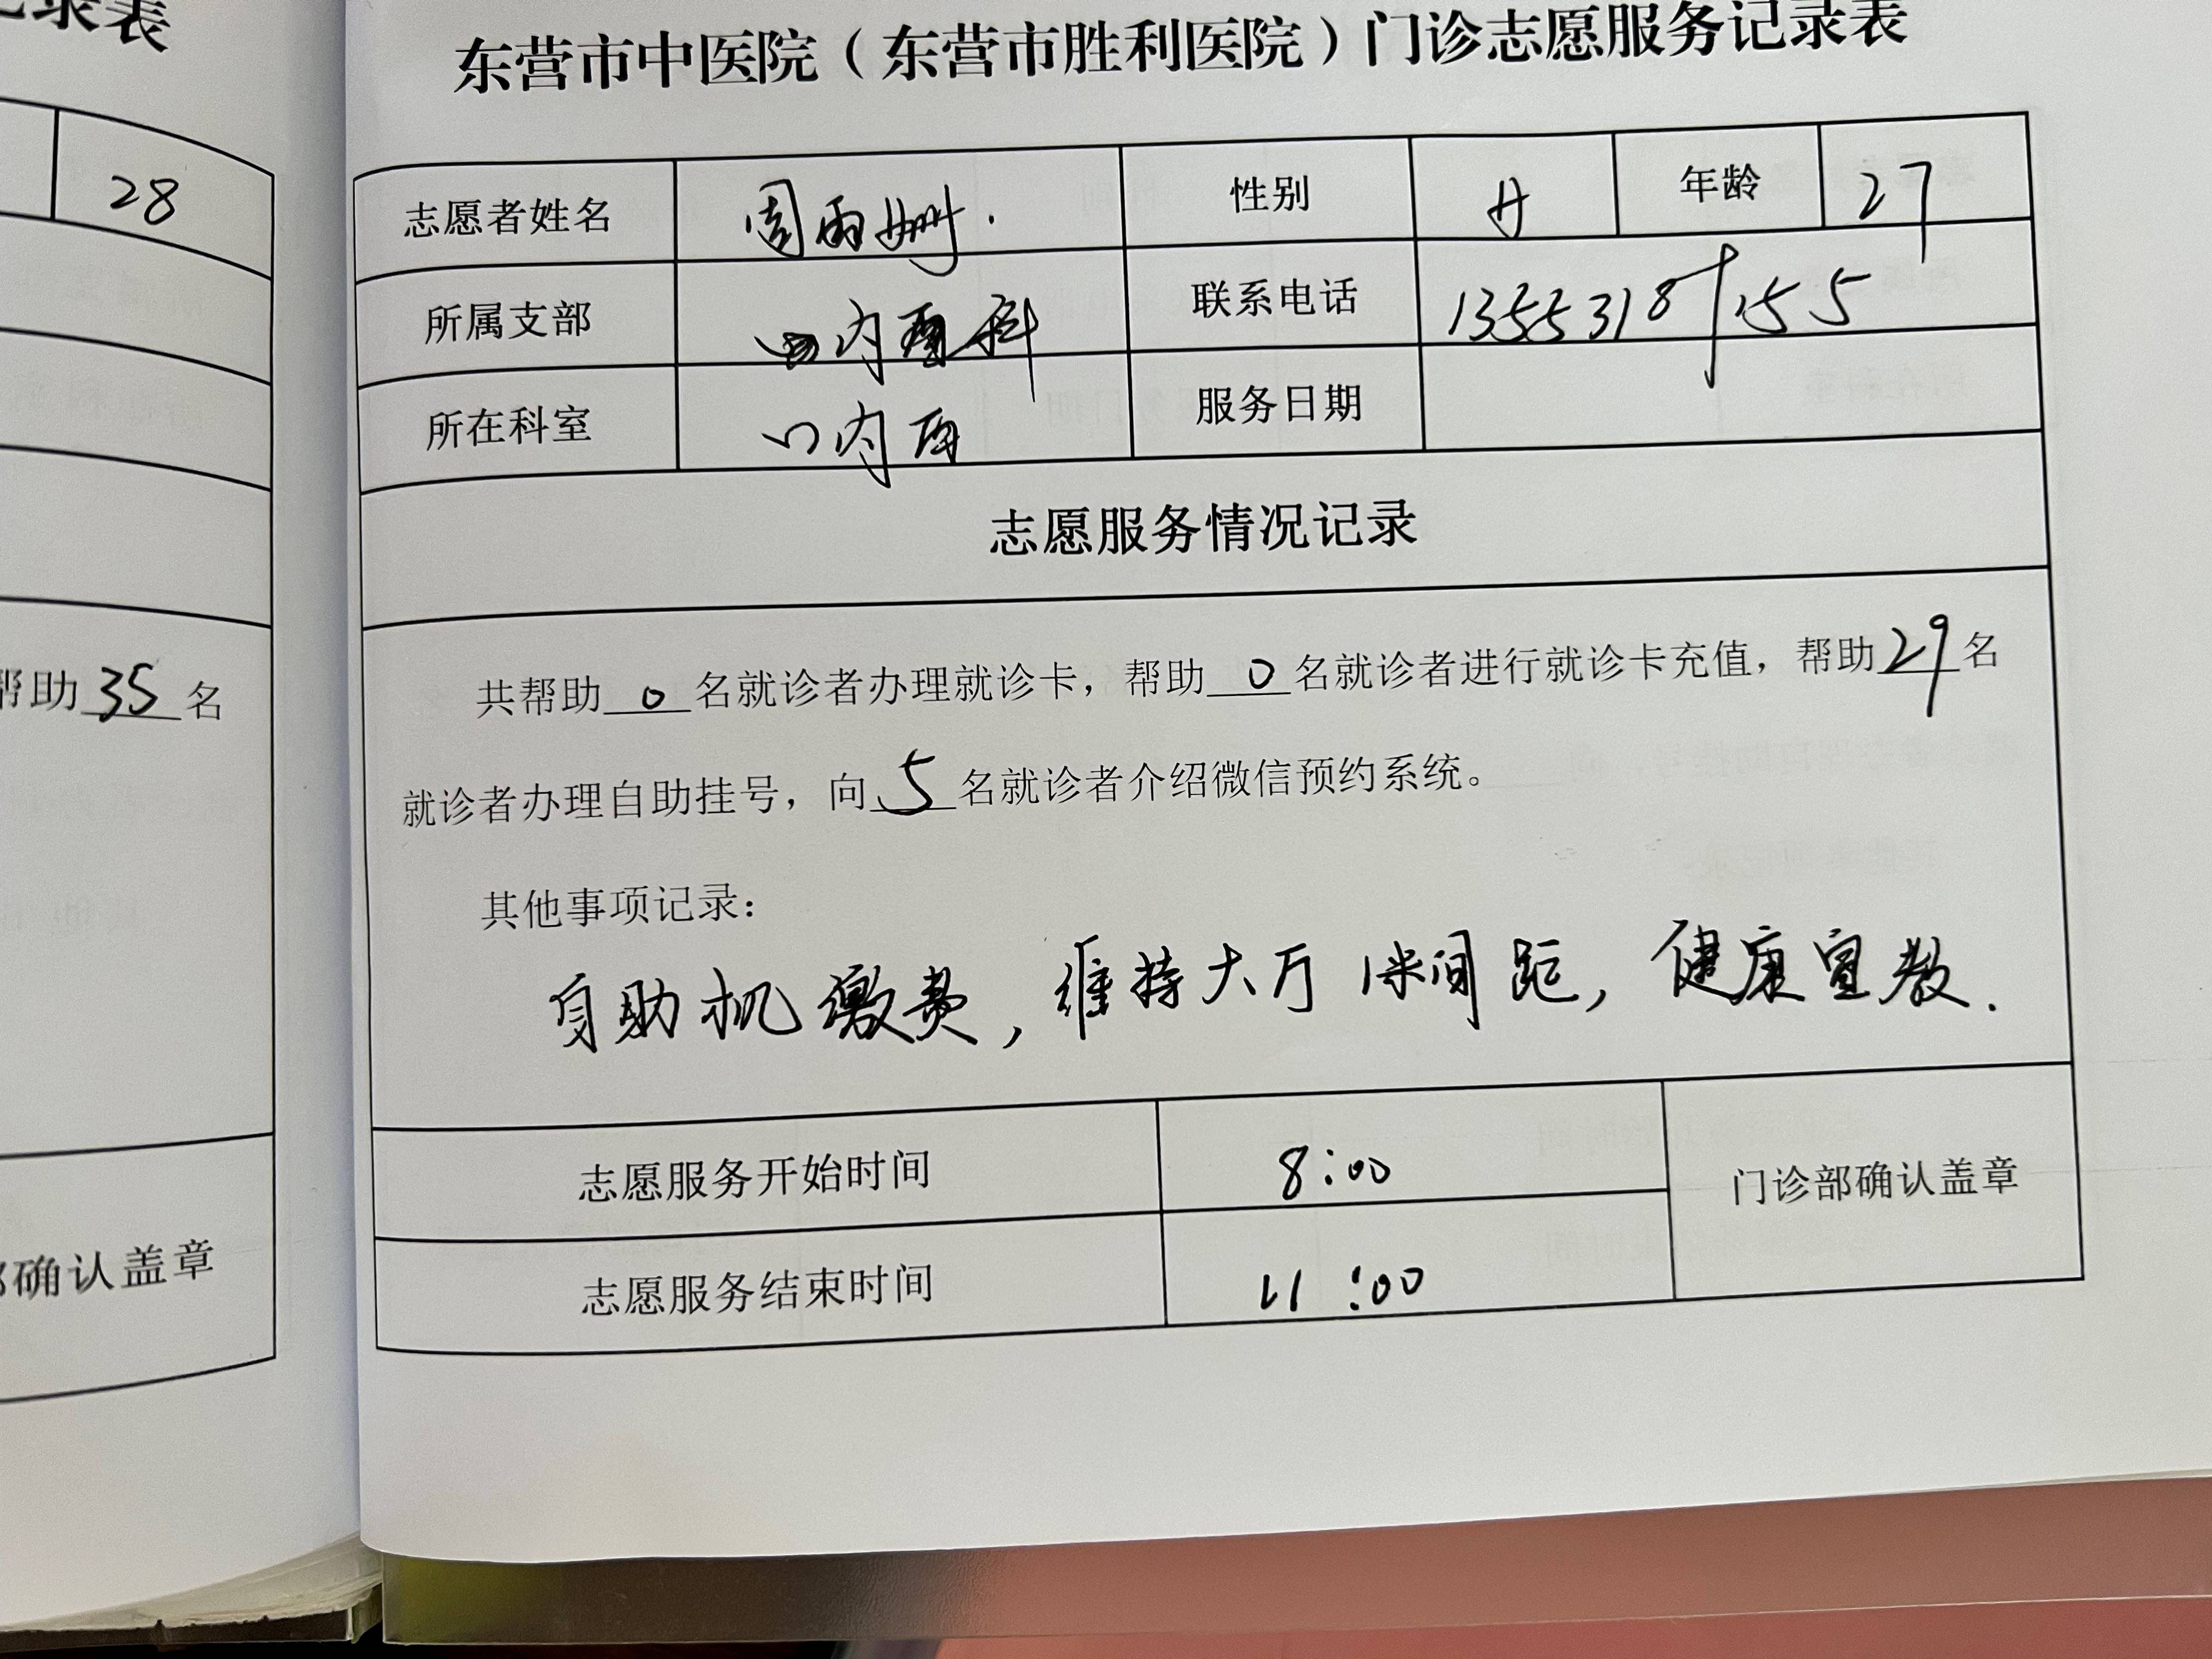 记录表
28
帮助 35 名
部确认盖章
东营市中医院（东营市胜利医院）门诊志愿服务记录表
志愿者姓名 周雨姗. 性别 女 年龄 27
所属支部 内 科 联系电话
所在科室 口内 服务日期
志愿服务情况记录
共帮助 0 名就诊者办理就诊卡，帮助 0 名就诊者进行就诊卡充值，帮助 29 名
就诊者办理自助挂号，向 5 名就诊者介绍微信预约系统。
其他事项记录：
自助机缴费，维持大厅1米间距，健康宣教.
志愿服务开始时间 8:00
门诊部确认盖章
志愿服务结束时间 11:00